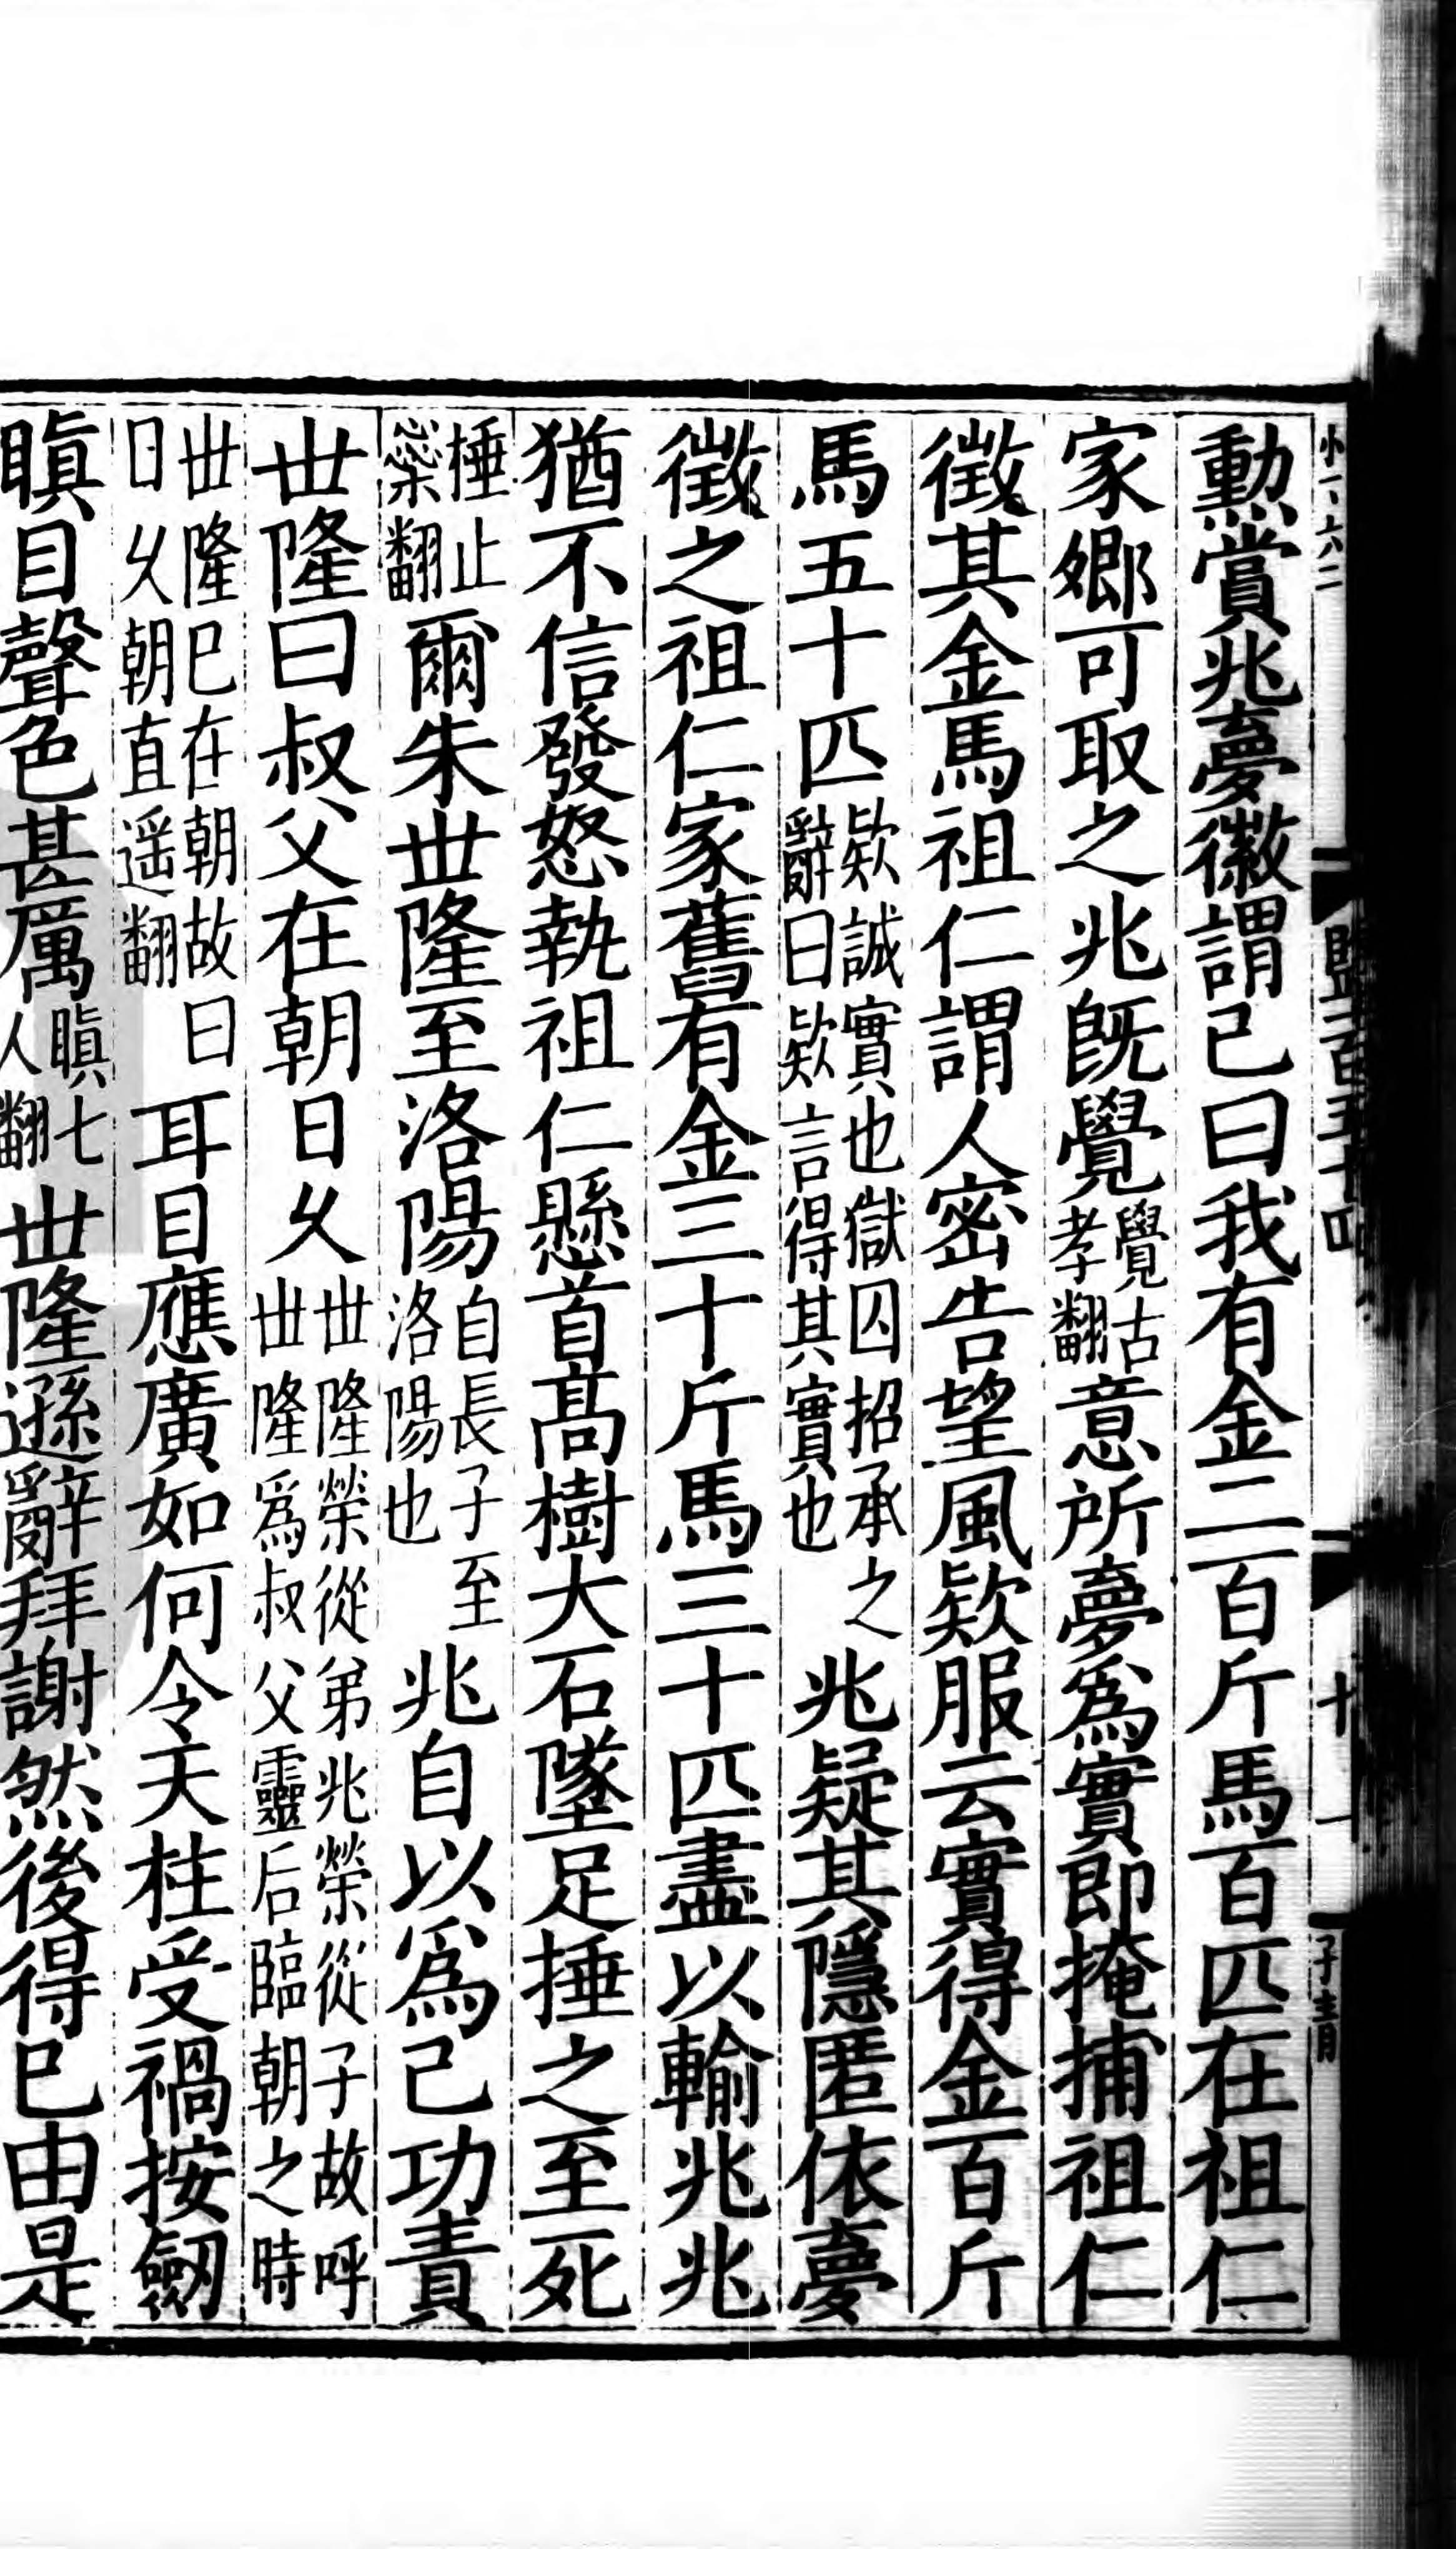 小一、六八二
鑑一百五十四
十一
子青
勳賞兆夢徽謂已曰我有金二百斤馬百匹在祖仁
家卿可取之兆旣覺覺古孝翻意所夢爲實即掩捕祖仁
徵其金馬祖仁謂人密告望風欵服云實得金百斤
馬五十匹欵誠實也獄囚招承之辭曰欵言得其實也兆疑其隱匿依夢
徵之祖仁家舊有金三十斤馬三十匹盡以輸兆兆
猶不信發怒執祖仁懸首髙樹大石墜足捶之至死
捶止橤翻爾朱丗隆至洛陽自長子至洛陽也兆自以爲己功責
丗隆曰叔父在朝日久丗隆榮從弟兆榮從子故呼丗隆爲叔父靈后臨朝之時
丗隆已在朝故曰日久朝直遥翻耳目應廣如何令天柱受禍按劒
瞋目聲色甚厲瞋七人翻丗隆遜辭拜謝然後得已由是